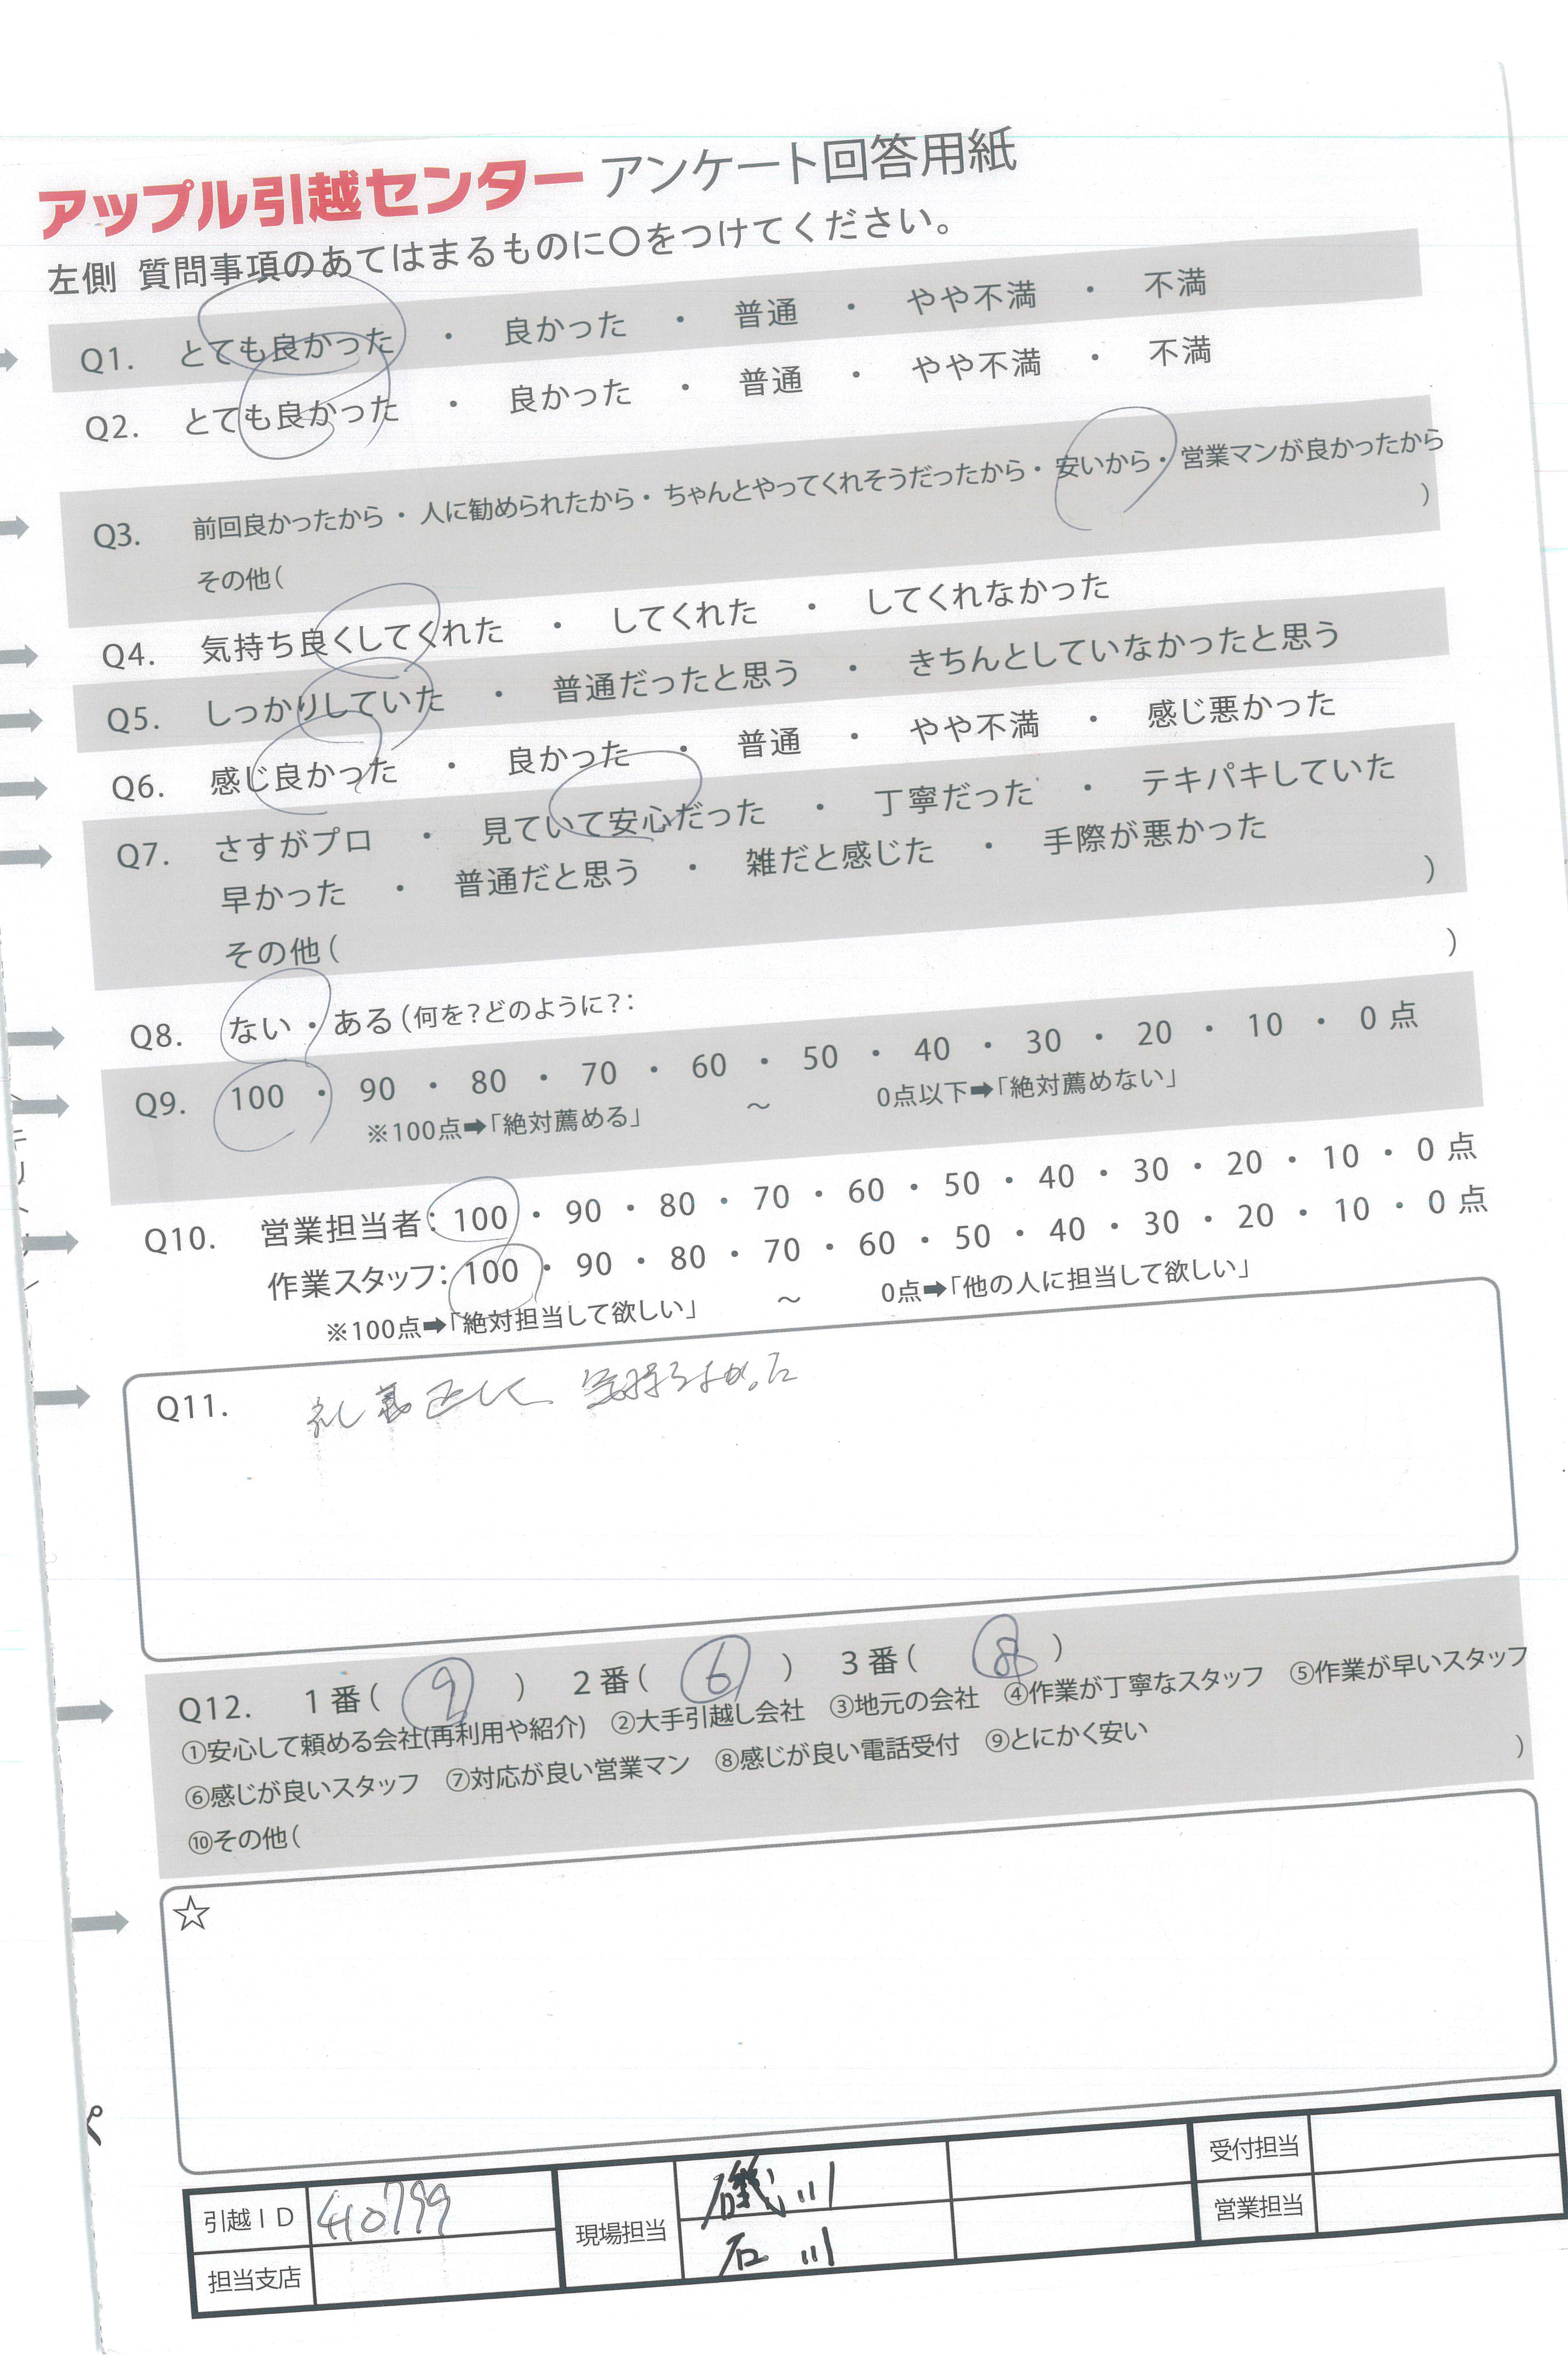 アップル引越センター アンケート回答用紙
左側 質問事項のあてはまるものに○をつけてください。
Q1. とても良かった ・ 良かった ・ 普通 ・ やや不満 ・ 不満
Q2. とても良かった ・ 良かった ・ 普通 ・ やや不満 ・ 不満
Q3. 前回良かったから ・ 人に勧められたから ・ ちゃんとやってくれそうだったから ・ 安いから ・ 営業マンが良かったから
その他( )
Q4. 気持ち良くしてくれた ・ してくれた ・ してくれなかった
Q5. しっかりしていた ・ 普通だったと思う ・ きちんとしていなかったと思う
Q6. 感じ良かった ・ 良かった ・ 普通 ・ やや不満 ・ 感じ悪かった
Q7. さすがプロ ・ 見ていて安心だった ・ 丁寧だった ・ テキパキしていた
早かった ・ 普通だと思う ・ 雑だと感じた ・ 手際が悪かった
その他( )
Q8. ない ・ ある(何を?どのように?: )
Q9. 100 ・ 90 ・ 80 ・ 70 ・ 60 ・ 50 ・ 40 ・ 30 ・ 20 ・ 10 ・ 0 点
※100点➡「絶対薦める」 ～ 0点以下➡「絶対薦めない」
Q10. 営業担当者: 100 ・ 90 ・ 80 ・ 70 ・ 60 ・ 50 ・ 40 ・ 30 ・ 20 ・ 10 ・ 0 点
作業スタッフ: 100 ・ 90 ・ 80 ・ 70 ・ 60 ・ 50 ・ 40 ・ 30 ・ 20 ・ 10 ・ 0 点
※100点➡「絶対担当して欲しい」 ～ 0点➡「他の人に担当して欲しい」
Q11. 礼義正しく 気持ちよかった
Q12. 1番( 9 ) 2番( 6 ) 3番( 8 )
①安心して頼める会社(再利用や紹介) ②大手引越し会社 ③地元の会社 ④作業が丁寧なスタッフ ⑤作業が早いスタッフ
⑥感じが良いスタッフ ⑦対応が良い営業マン ⑧感じが良い電話受付 ⑨とにかく安い
⑩その他( )
☆
引越ID 410799
担当支店
現場担当 磯川
石川
受付担当
営業担当